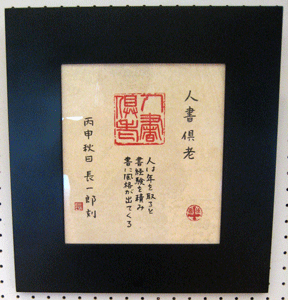 人書俱老
人書俱老
人は年を取ると
書経験を積み
書に風格が出てくる
丙申秋日 長一郎刻